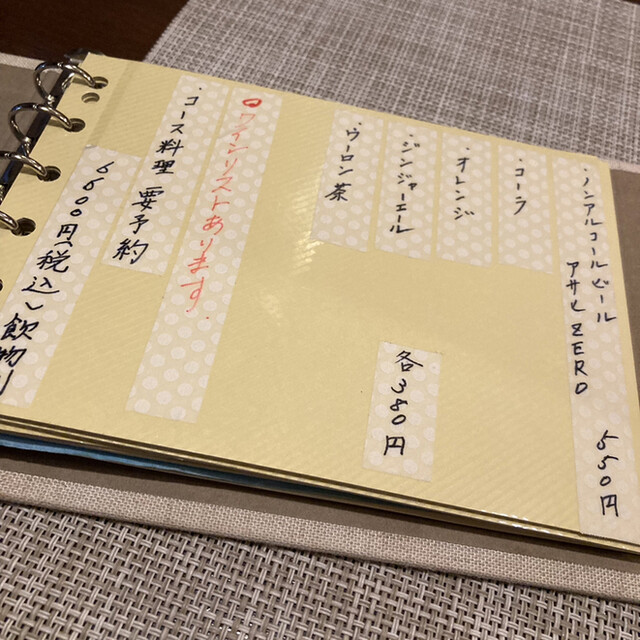 ・ノンアルコールビール
アサヒZERO
550円
・コーラ
・オレンジ
・ジンジャーエール
・ウーロン茶
各380円
ワインリストあります.
・コース料理 要予約
6600円(税込)飲物